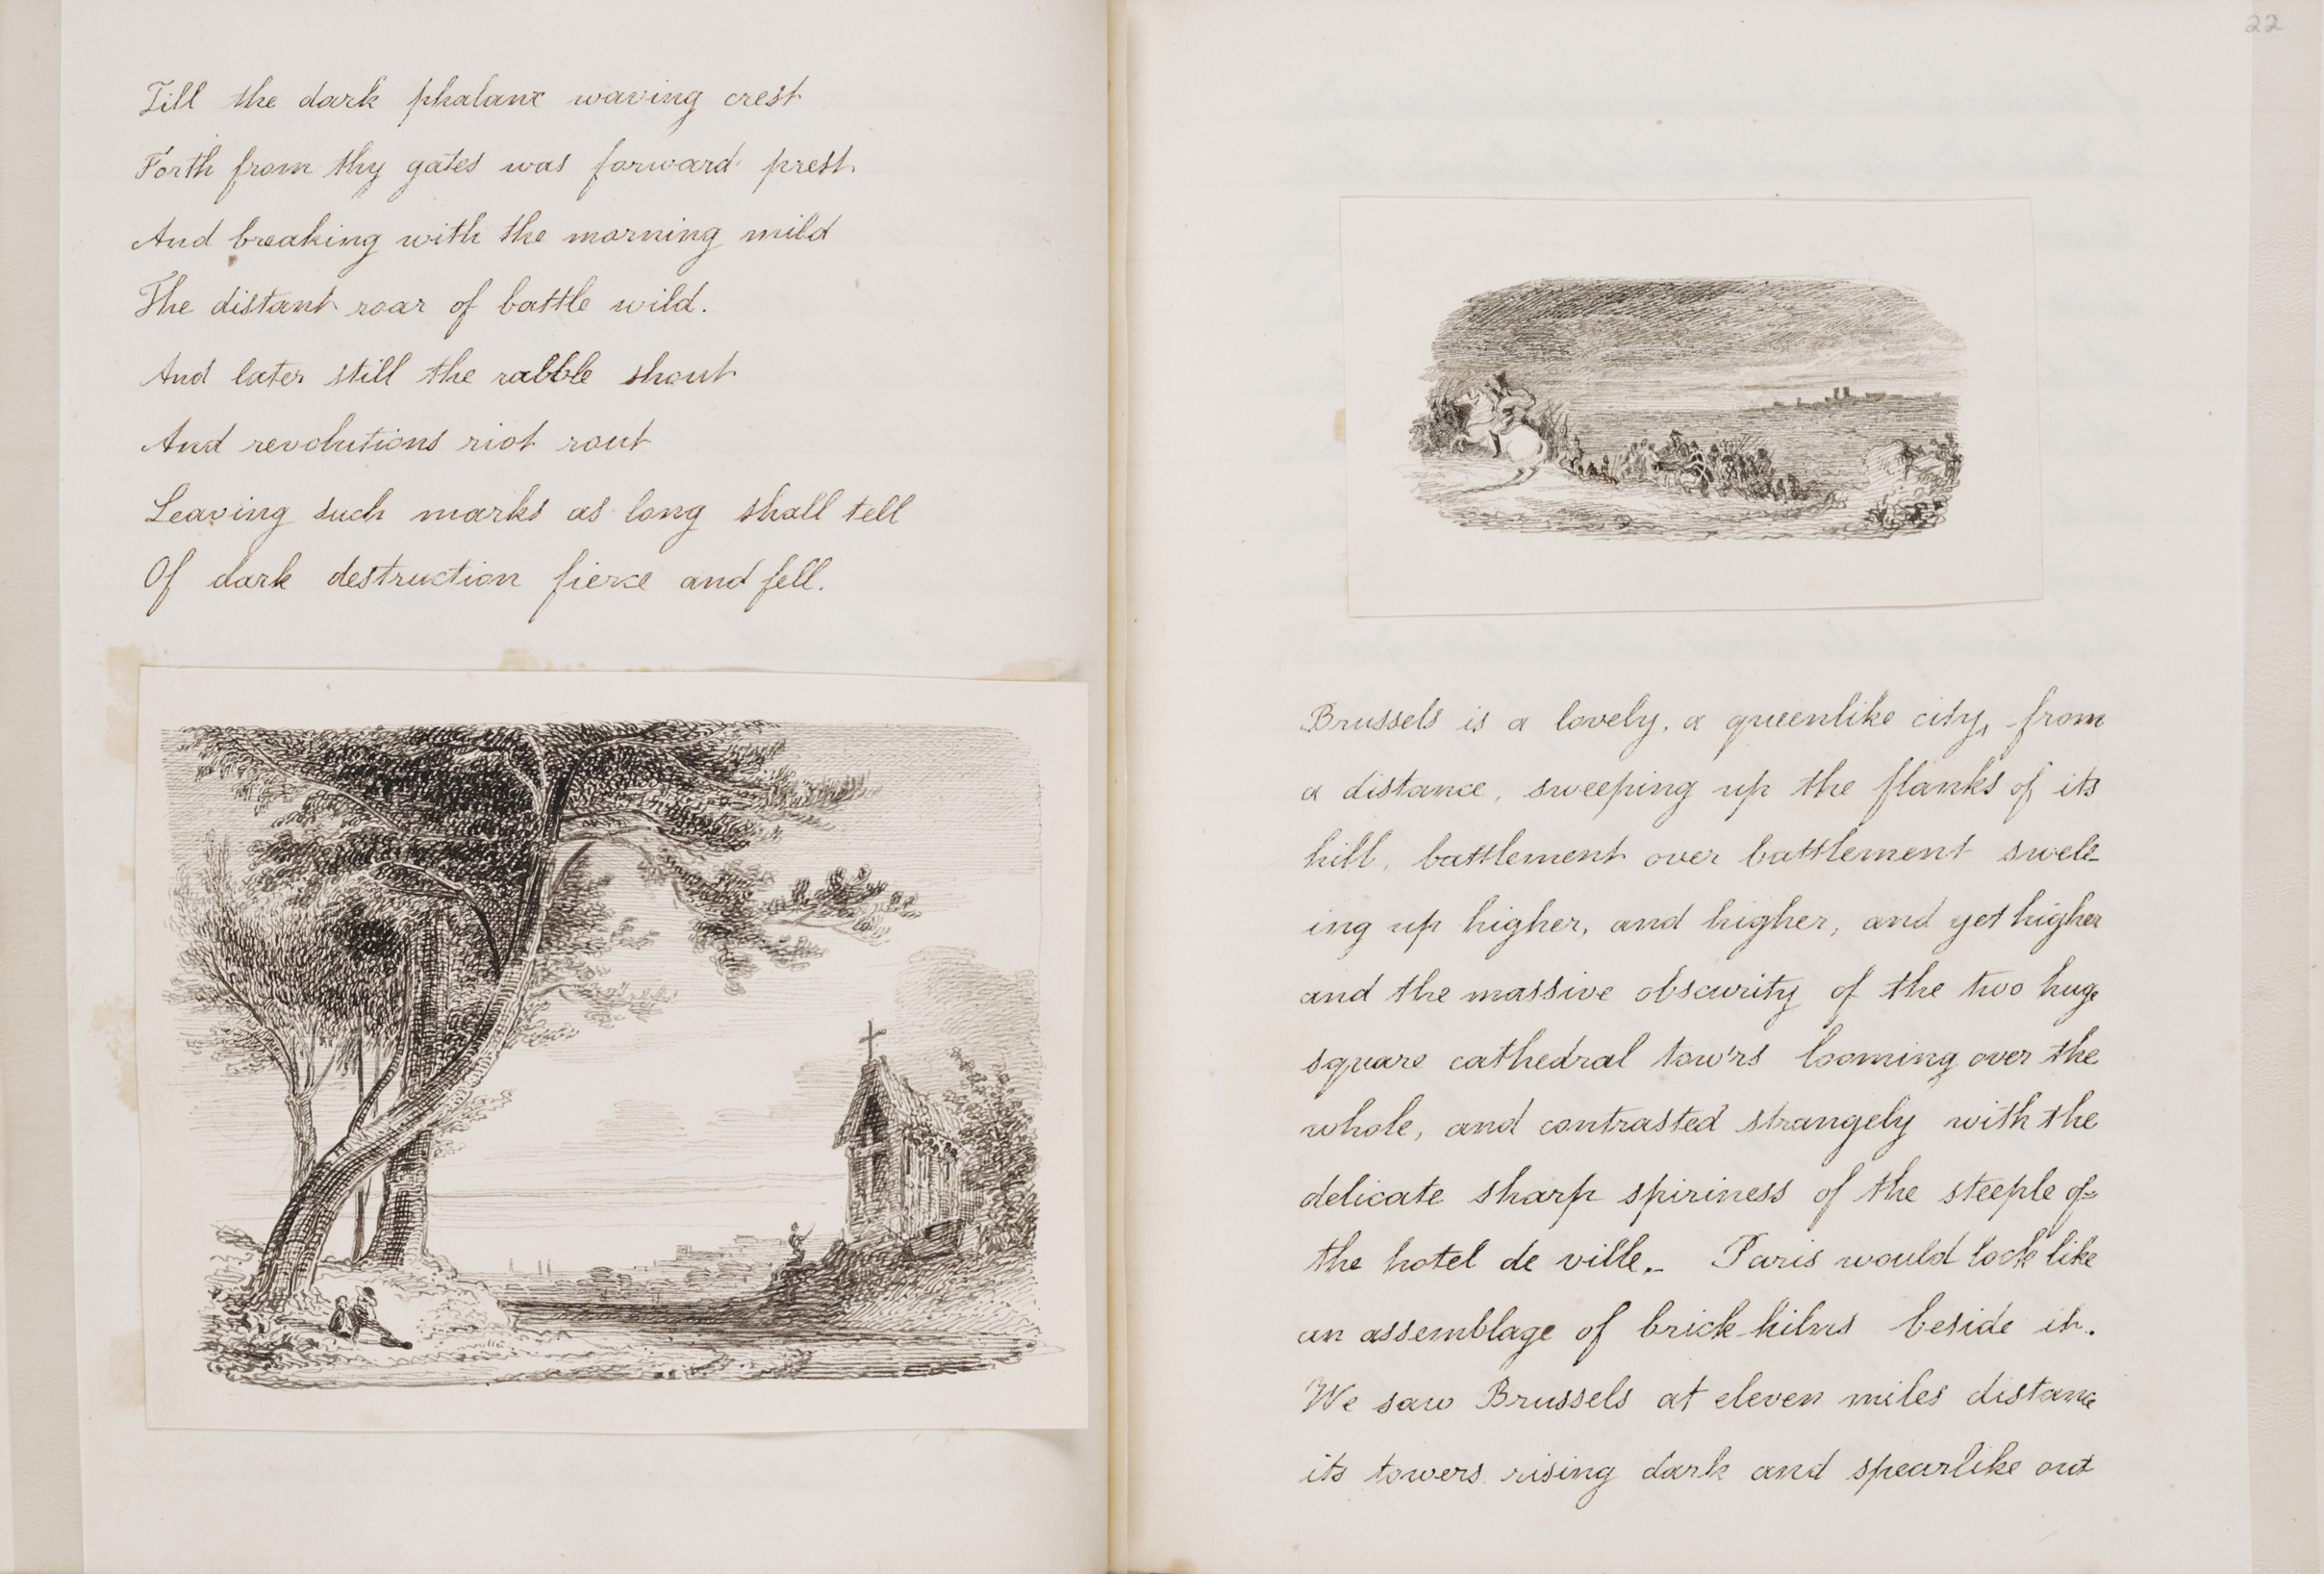 Till the dark phalanx waving crest
Forth from thy gates was forward prest
And breaking with the morning mild
The distant roar of battle wild.
And later still the rabble shout
And revolutions riot rout
Leaving such marks as long shall tell
Of dark destruction fierce and fell.
22
Brussels is a lovely, a queenlike city, from
a distance, sweeping up the flanks of its
hill, battlement over battlement swell-
ing up higher, and higher, and yet higher
and the massive obscurity of the two huge
square cathedral tow'rs looming over the
whole, and contrasted strangely with the
delicate sharp spiriness of the steeple of
the hotel de ville. Paris would look like
an assemblage of brick kilns beside it.
We saw Brussels at eleven miles distance
its towers rising dark and spearlike out